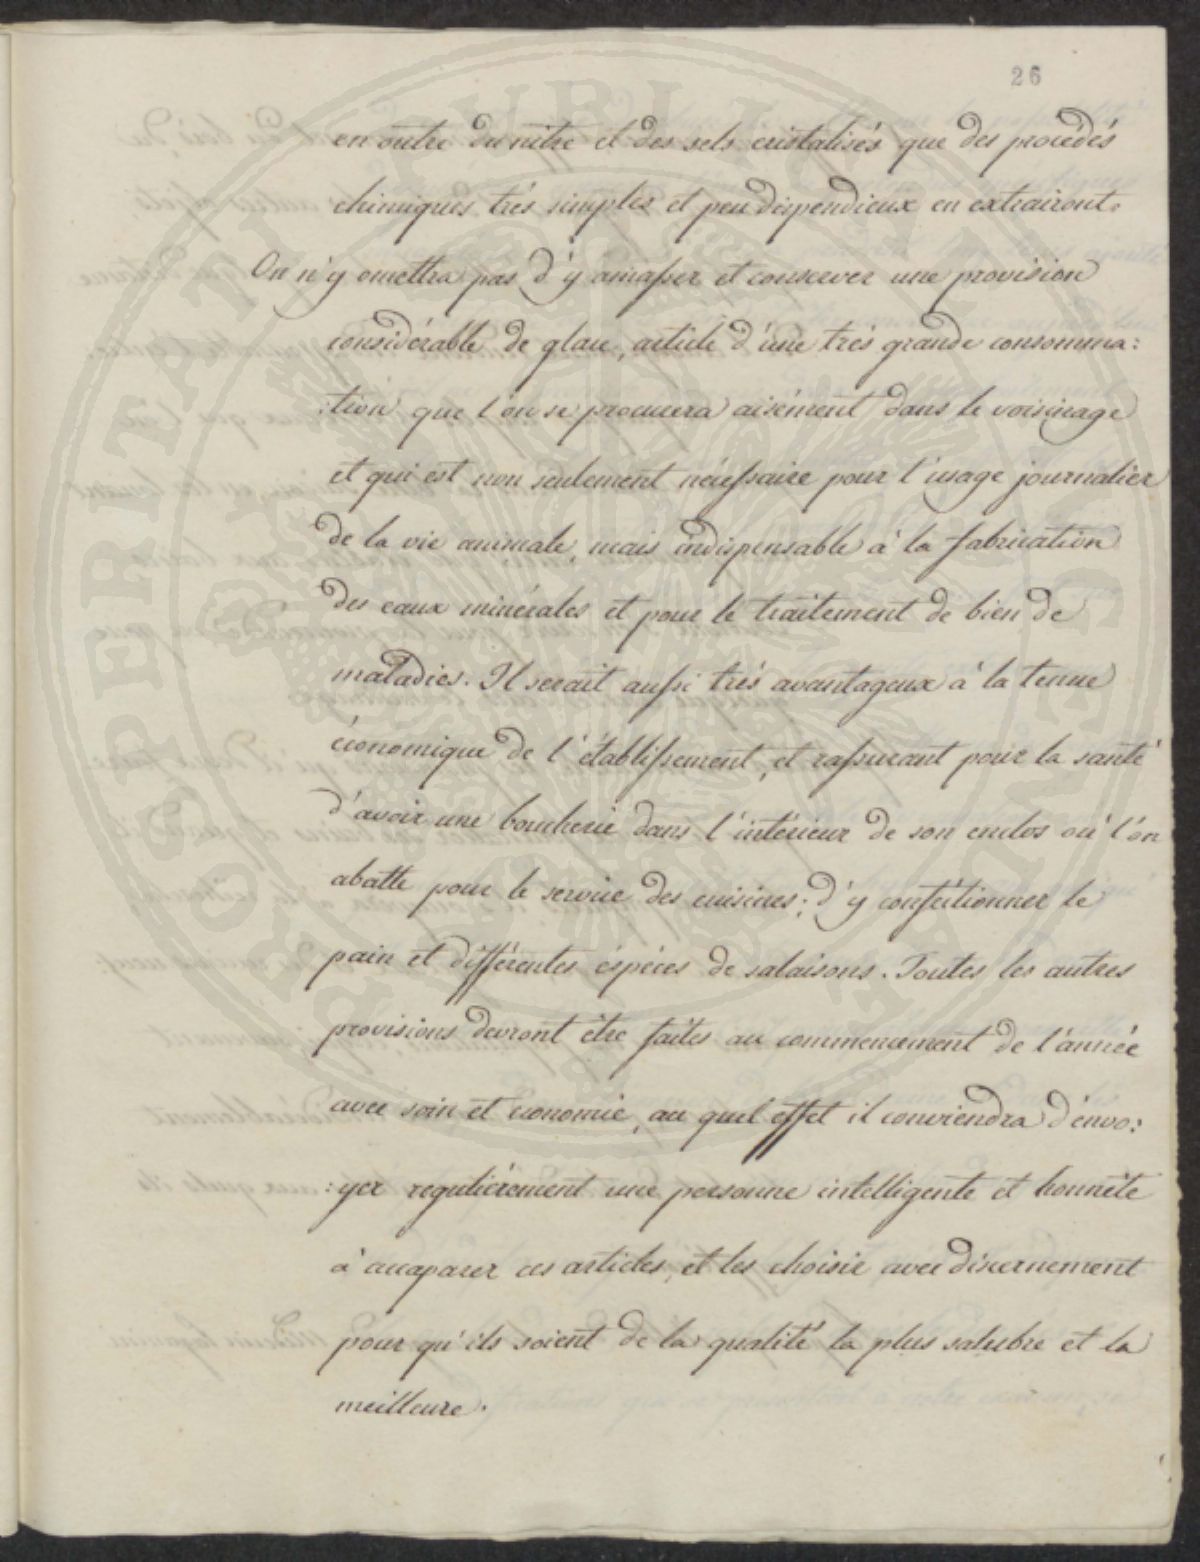 26
en outre du nitre et des sels cristalisés que des procédés
chimiques très simples et peu dispendieux en extrairont.
On n'y omettra pas d'y amasser et conserver une provision
considérable de glace, article d'une très grande consomma:
:tion que l'on se procurera aisément dans le voisinage
et qui est non seulement nécessaire pour l'usage journalier
de la vie animale, mais indispensable à la fabrication
des eaux minérales et pour le traitement de bien de
maladies. Il serait aussi très avantageux à la tenue
économique de l'établissement, et rassurant pour la santé
d'avoir une boucherie dans l'intérieur de son enclos où l'on
abatte pour le service des cuisines; d'y confectionner le
pain et différentes éspèces de salaisons. Toutes les autres
provisions devront être faites au commencement de l'année
avec soin et economie, au quel effet il conviendra d'envo:
:yer regulièrement une personne intelligente et honnête
à accaparer ces articles, et les choisir avec discernement
pour qu'ils soient de la qualité la plus salubre et la
meilleure.
PROSPERITATI PUBLICAE